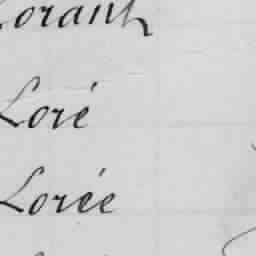 Lorant
Loré
Lorée